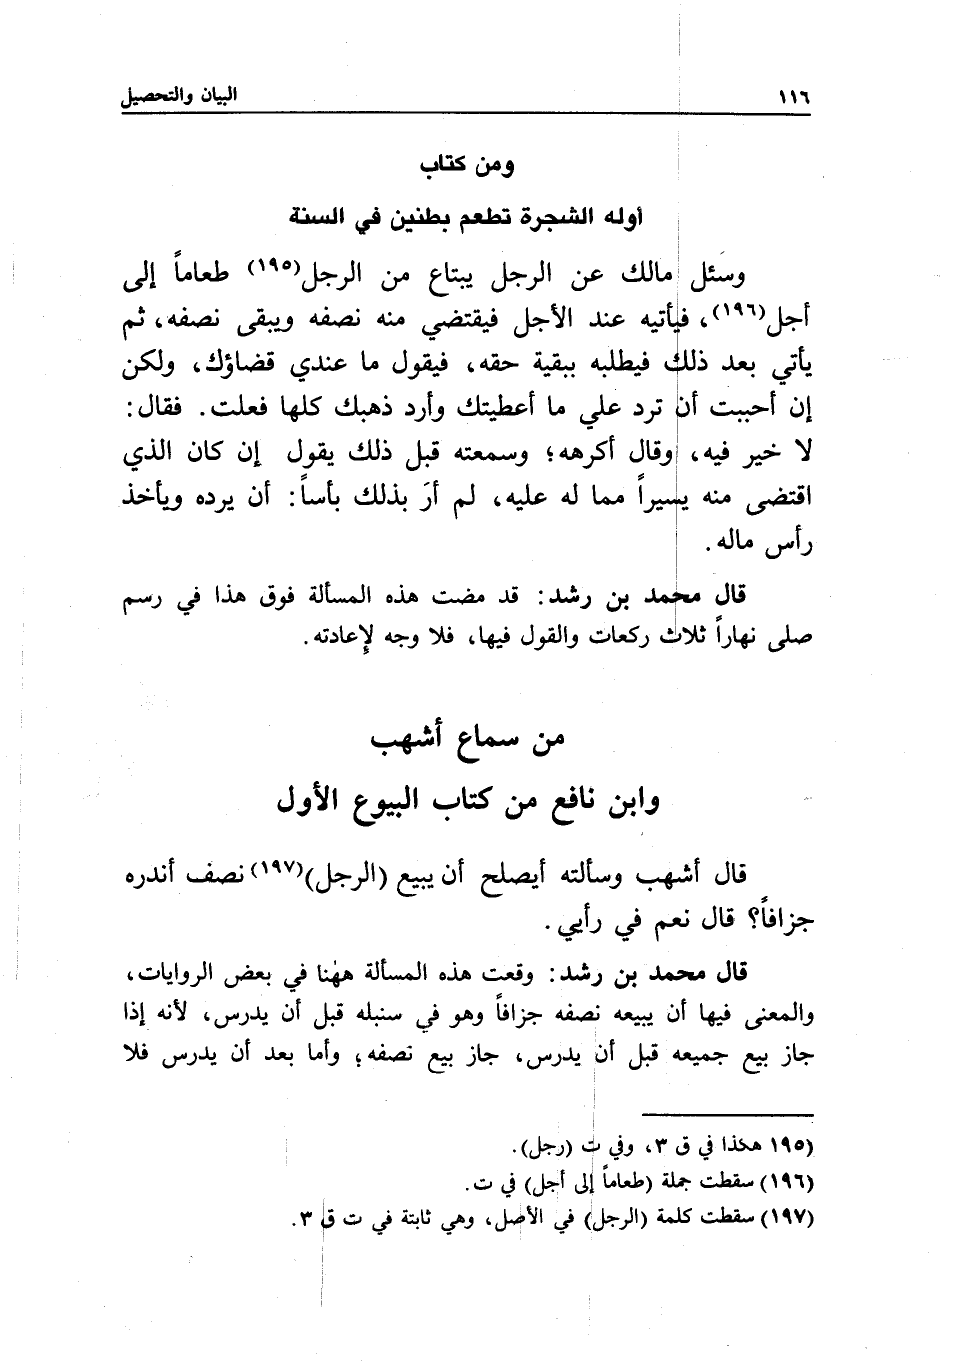 ١١٦ البيان والتحصيل
ومن كتاب
أوله الشجرة تطعم بطنين في السنة
وسَئل مالك عن الرجل يبتاع من الرجل(١٩٥) طعاماً إلى
أجل(١٩٦)، فيأتيه عند الأجل فيقتضي منه نصفه ويبقى نصفه، ثم
يأتي بعد ذلك فيطلبه ببقية حقه، فيقول ما عندي قضاؤك، ولكن
إن أحببت أن ترد علي ما أعطيتك وأرد ذهبك كلها فعلت. فقال:
لا خير فيه، وقال أكرهه؛ وسمعته قبل ذلك يقول إن كان الذي
اقتضى منه يسيراً مما له عليه، لم أرَ بذلك بأساً: أن يرده ويأخذ
رأس ماله.
قال محمد بن رشد: قد مضت هذه المسألة فوق هذا في رسم
صلى نهاراً ثلاث ركعات والقول فيها، فلا وجه لإعادته.
من سماع أشهب
وابن نافع من كتاب البيوع الأول
قال أشهب وسألته أيصلح أن يبيع (الرجل)(١٩٧) نصف أندره
جزافاً؟ قال نعم في رأيي.
قال محمد بن رشد: وقعت هذه المسألة ههُنا في بعض الروايات،
والمعنى فيها أن يبيعه نصفه جزافاً وهو في سنبله قبل أن يدرس، لأنه إذا
جاز بيع جميعه قبل أن يدرس، جاز بيع نصفه؛ وأما بعد أن يدرس فلا
(١٩٥ هكذا في ق ٣، وفي ت (رجل).
(١٩٦) سقطت جملة (طعاماً إلى أجل) في ت.
(١٩٧) سقطت كلمة (الرجل) في الأصل، وهي ثابتة في ت ق ٣.